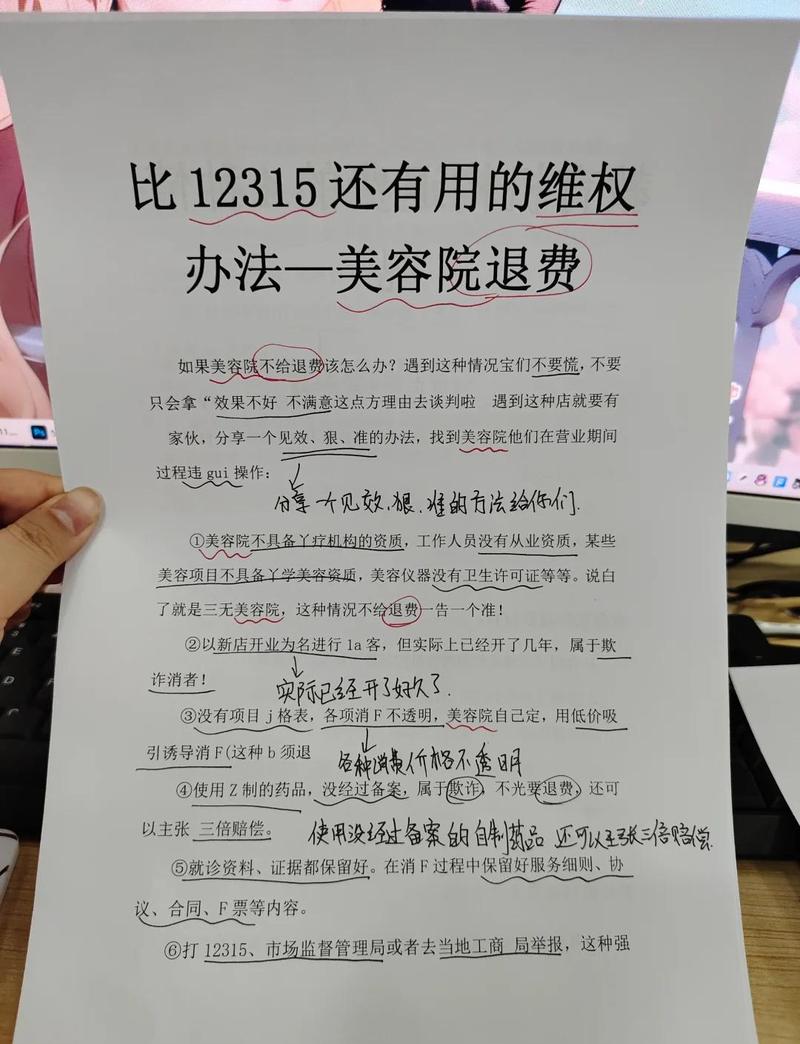 比12315还有用的维权
办法—美容院退费
如果美容院不给退费该怎么办？遇到这种情况宝们不要慌，不要
只会拿“效果不好 不满意这点方理由去谈判啦 遇到这种店就要有
家伙，分享一个见效、狠、准的办法，找到美容院他们在营业期间
过程违gui操作：
分享一个见效、狠、准的方法给你们.
①美容院不具备丫疗机构的资质，工作人员没有从业资质，某些
美容项目不具备丫学美容资质，美容仪器没有卫生许可证等等。说白
了就是三无美容院，这种情况不给退费一告一个准！
②以新店开业为名进行la客，但实际上已经开了几年，属于欺
诈消者！
实际已经开了好久了.
③没有项目j格表，各项消F不透明，美容院自己定，用低价吸
引诱导消F(这种b须退
各种消费价格不透明
④使用Z制的药品，没经过备案，属于欺诈，不光要退费，还可
以主张 三倍赔偿。
使用没经过备案的自制药品 还可以主张三倍赔偿.
⑤就诊资料、证据都保留好。在消F过程中保留好服务细则、协
议、合同、F票等内容。
⑥打12315、市场监督管理局或者去当地工商 局举报，这种强